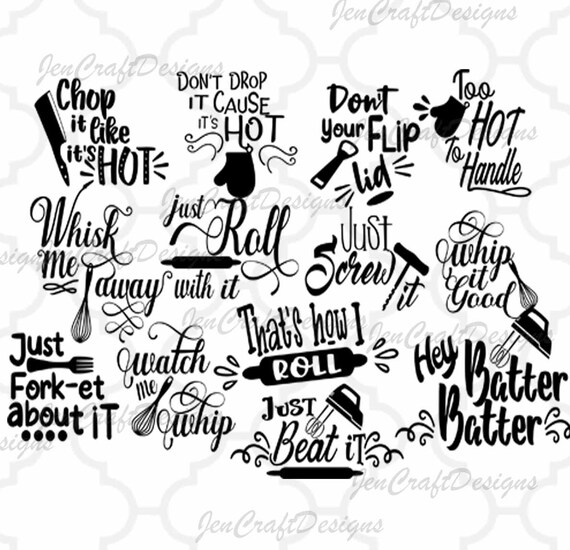 JenCraftDesigns
JenCraftDesigns
Chop
it like
it's HOT
DON'T DROP
IT CAUSE
IT'S HOT
Don't
your FLIP
lid
Too
HOT
To
Handle
Whisk
Me
away
just
Roll
with it
Just
Screw
it
Whip
it
Good
Just
Fork-et
about IT
Watch
me
Whip
That's how I
ROLL
JUST
Beat iT
Hey
Batter
Batter
JenCraftDesigns
JenCraftDesigns